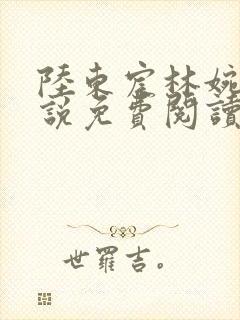 陸東宦林婉
說免費閱讀
世羅吉。